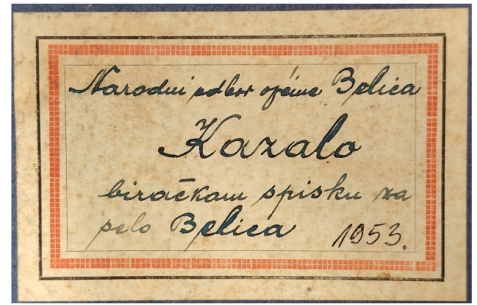 Narodni odbor općine Belica
Kazalo
biračkom spisku za
selo Belica 1953.